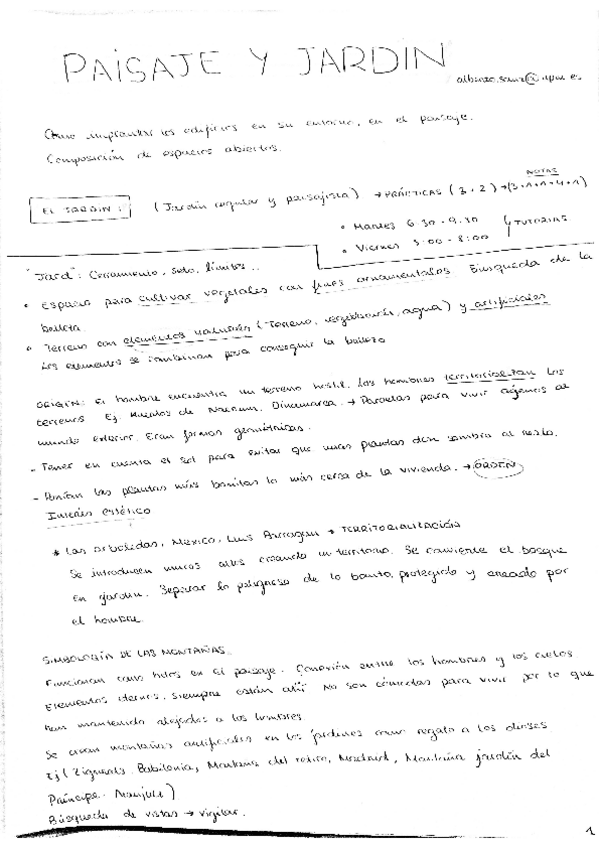 PAISAJE Y JARDIN
Cómo implantar los edificios en su entorno, en el paisaje.
Composición de espacios abiertos.
EL JARDIN: (Jardín regular y paisajista) → PRÁCTICAS (3 + 2) →
NOTAS
• Martes 6:30 - 9:30
• Viernes 5:00 - 8:00
TUTORIAS
"Jard": Cerramiento, seto, límites...
• Espacio para cultivar vegetales con fines ornamentales. Búsqueda de la
belleza.
• Terreno con elementos naturales (Terreno, vegetación, agua) y artificiales
Los elementos se combinan para conseguir la belleza
ORIGEN: El hombre encuentra un terreno hostil. Los hombres territorializan los
terrenos Ej. Huertos de Naerum, Dinamarca. → Parcelas para vivir ajenos al
mundo exterior. Eran formas geométricas.
- Tener en cuenta el sol para evitar que unas plantas den sombra al resto.
- Ponían las plantas más bonitas lo más cerca de la vivienda. → ORDEN
Interés estético
* Las arboledas, México, Luis Barragan → TERRITORIALIZACIÓN
Se introducen muros altos creando un territorio. Se convierte el bosque
en jardín. Separar lo peligroso de lo bonito, protegido y creado por
el hombre.
SIMBOLOGÍA DE LAS MONTAÑAS
Funcionan como hitos en el paisaje. Conexión entre los hombres y los cielos
Elementos eternos, siempre están ahí. No son cómodas para vivir por lo que
han mantenido alejados a los hombres.
Se crean montañas artificiales en los jardines como regalo a los dioses
Ej (Zigurats. Babilonia, Montaña del retiro, Madrid, Montaña jardín del
Príncipe.)
Búsqueda de vistas → vigilar.
1